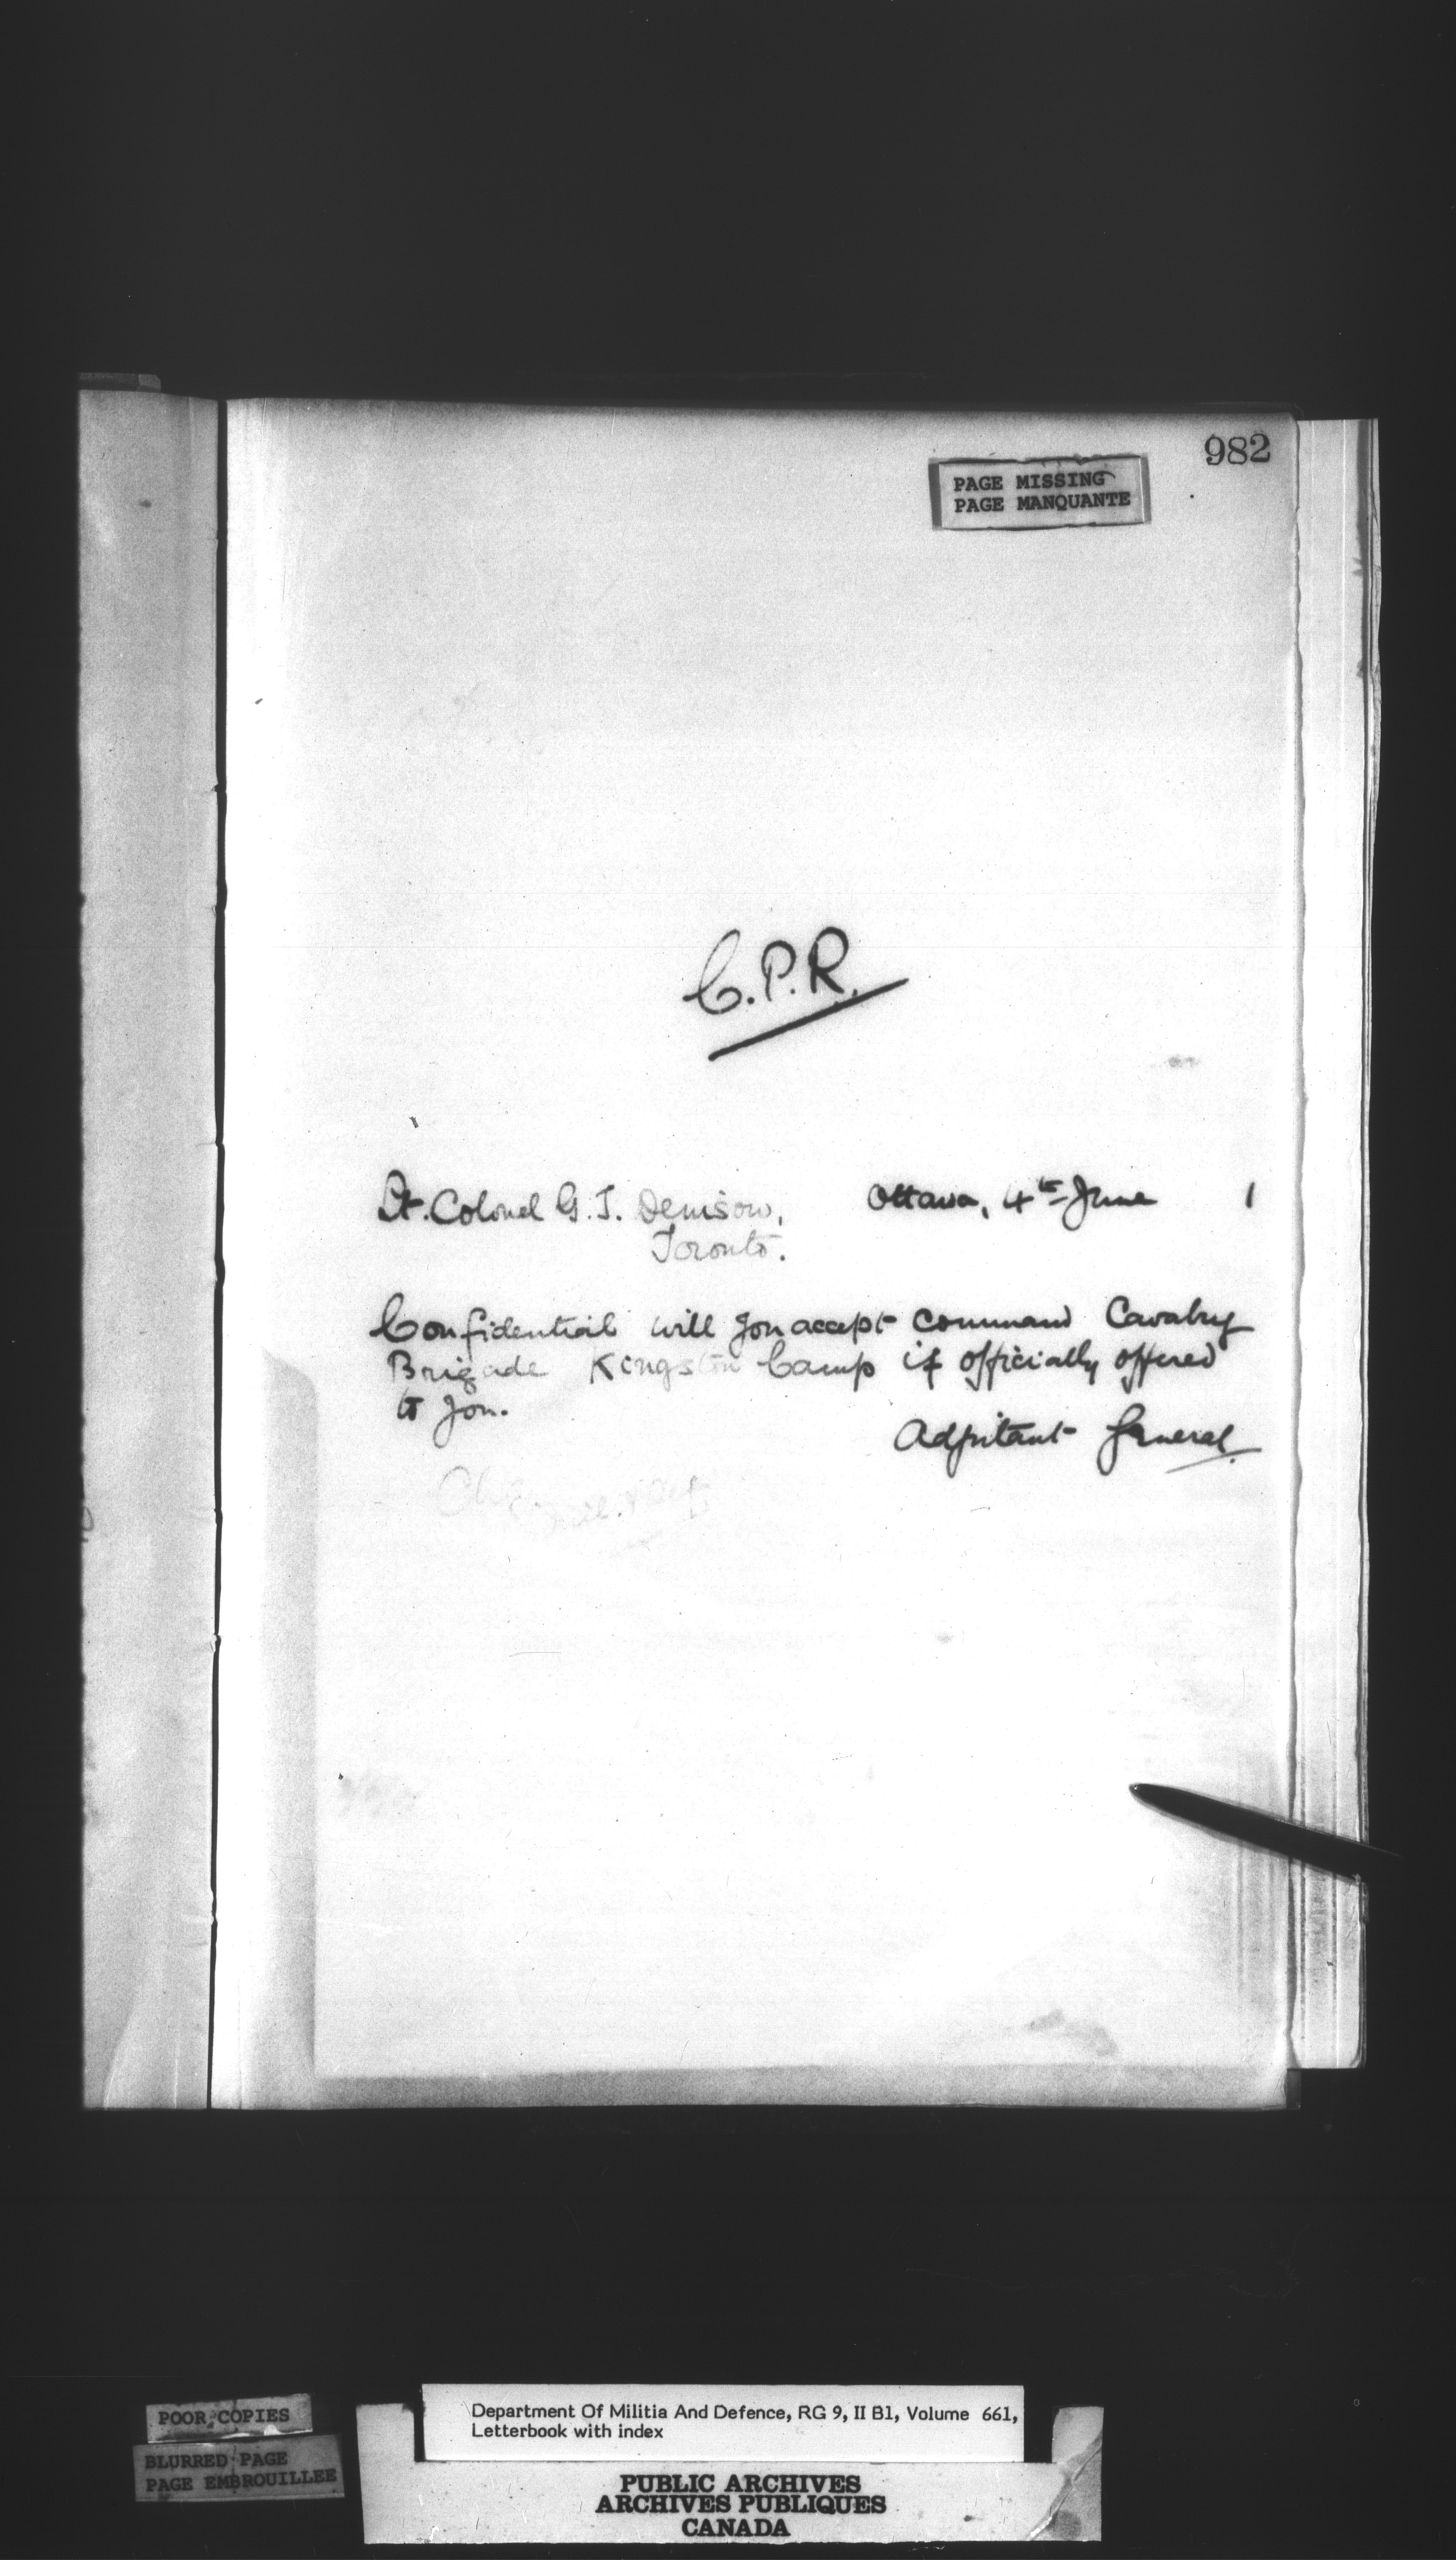 982
PAGE MISSING
PAGE MANQUANTE
C.P.R.
Lt. Colonel G. T. Denison, Ottawa, 4th June 1
Toronto.
Confidential will you accept command Cavalry
Brigade Kingston Camp if officially offered
to you.
Adjutant General
Chg. Mil. & Def.
POOR COPIES
BLURRED PAGE
PAGE EMBROUILLEE
Department Of Militia And Defence, RG 9, II B1, Volume 661,
Letterbook with index
PUBLIC ARCHIVES
ARCHIVES PUBLIQUES
CANADA